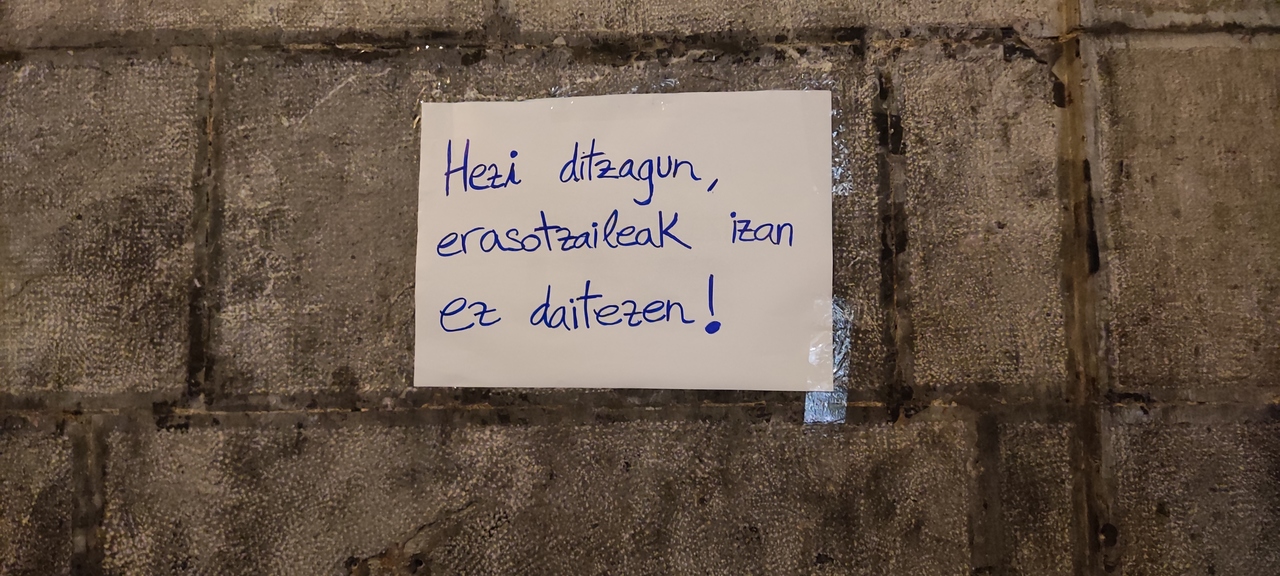 Hezi ditzagun,
erasotzaileak izan
ez daitezen!